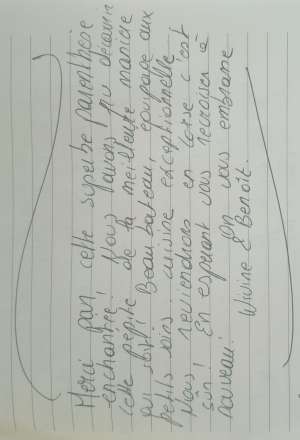 Merci pour cette superbe parenthèse
enchantée! Nous avons pu découvrir
cette pépite de la meilleure manière
qui soit! Beau bateau, équipage aux
petits soins, cuisine exceptionnelle.
Nous reviendrons en Corse c'est
sûr! En espérant vous recroiser à
nouveau! On vous embrasse
Wivine & Benoît.